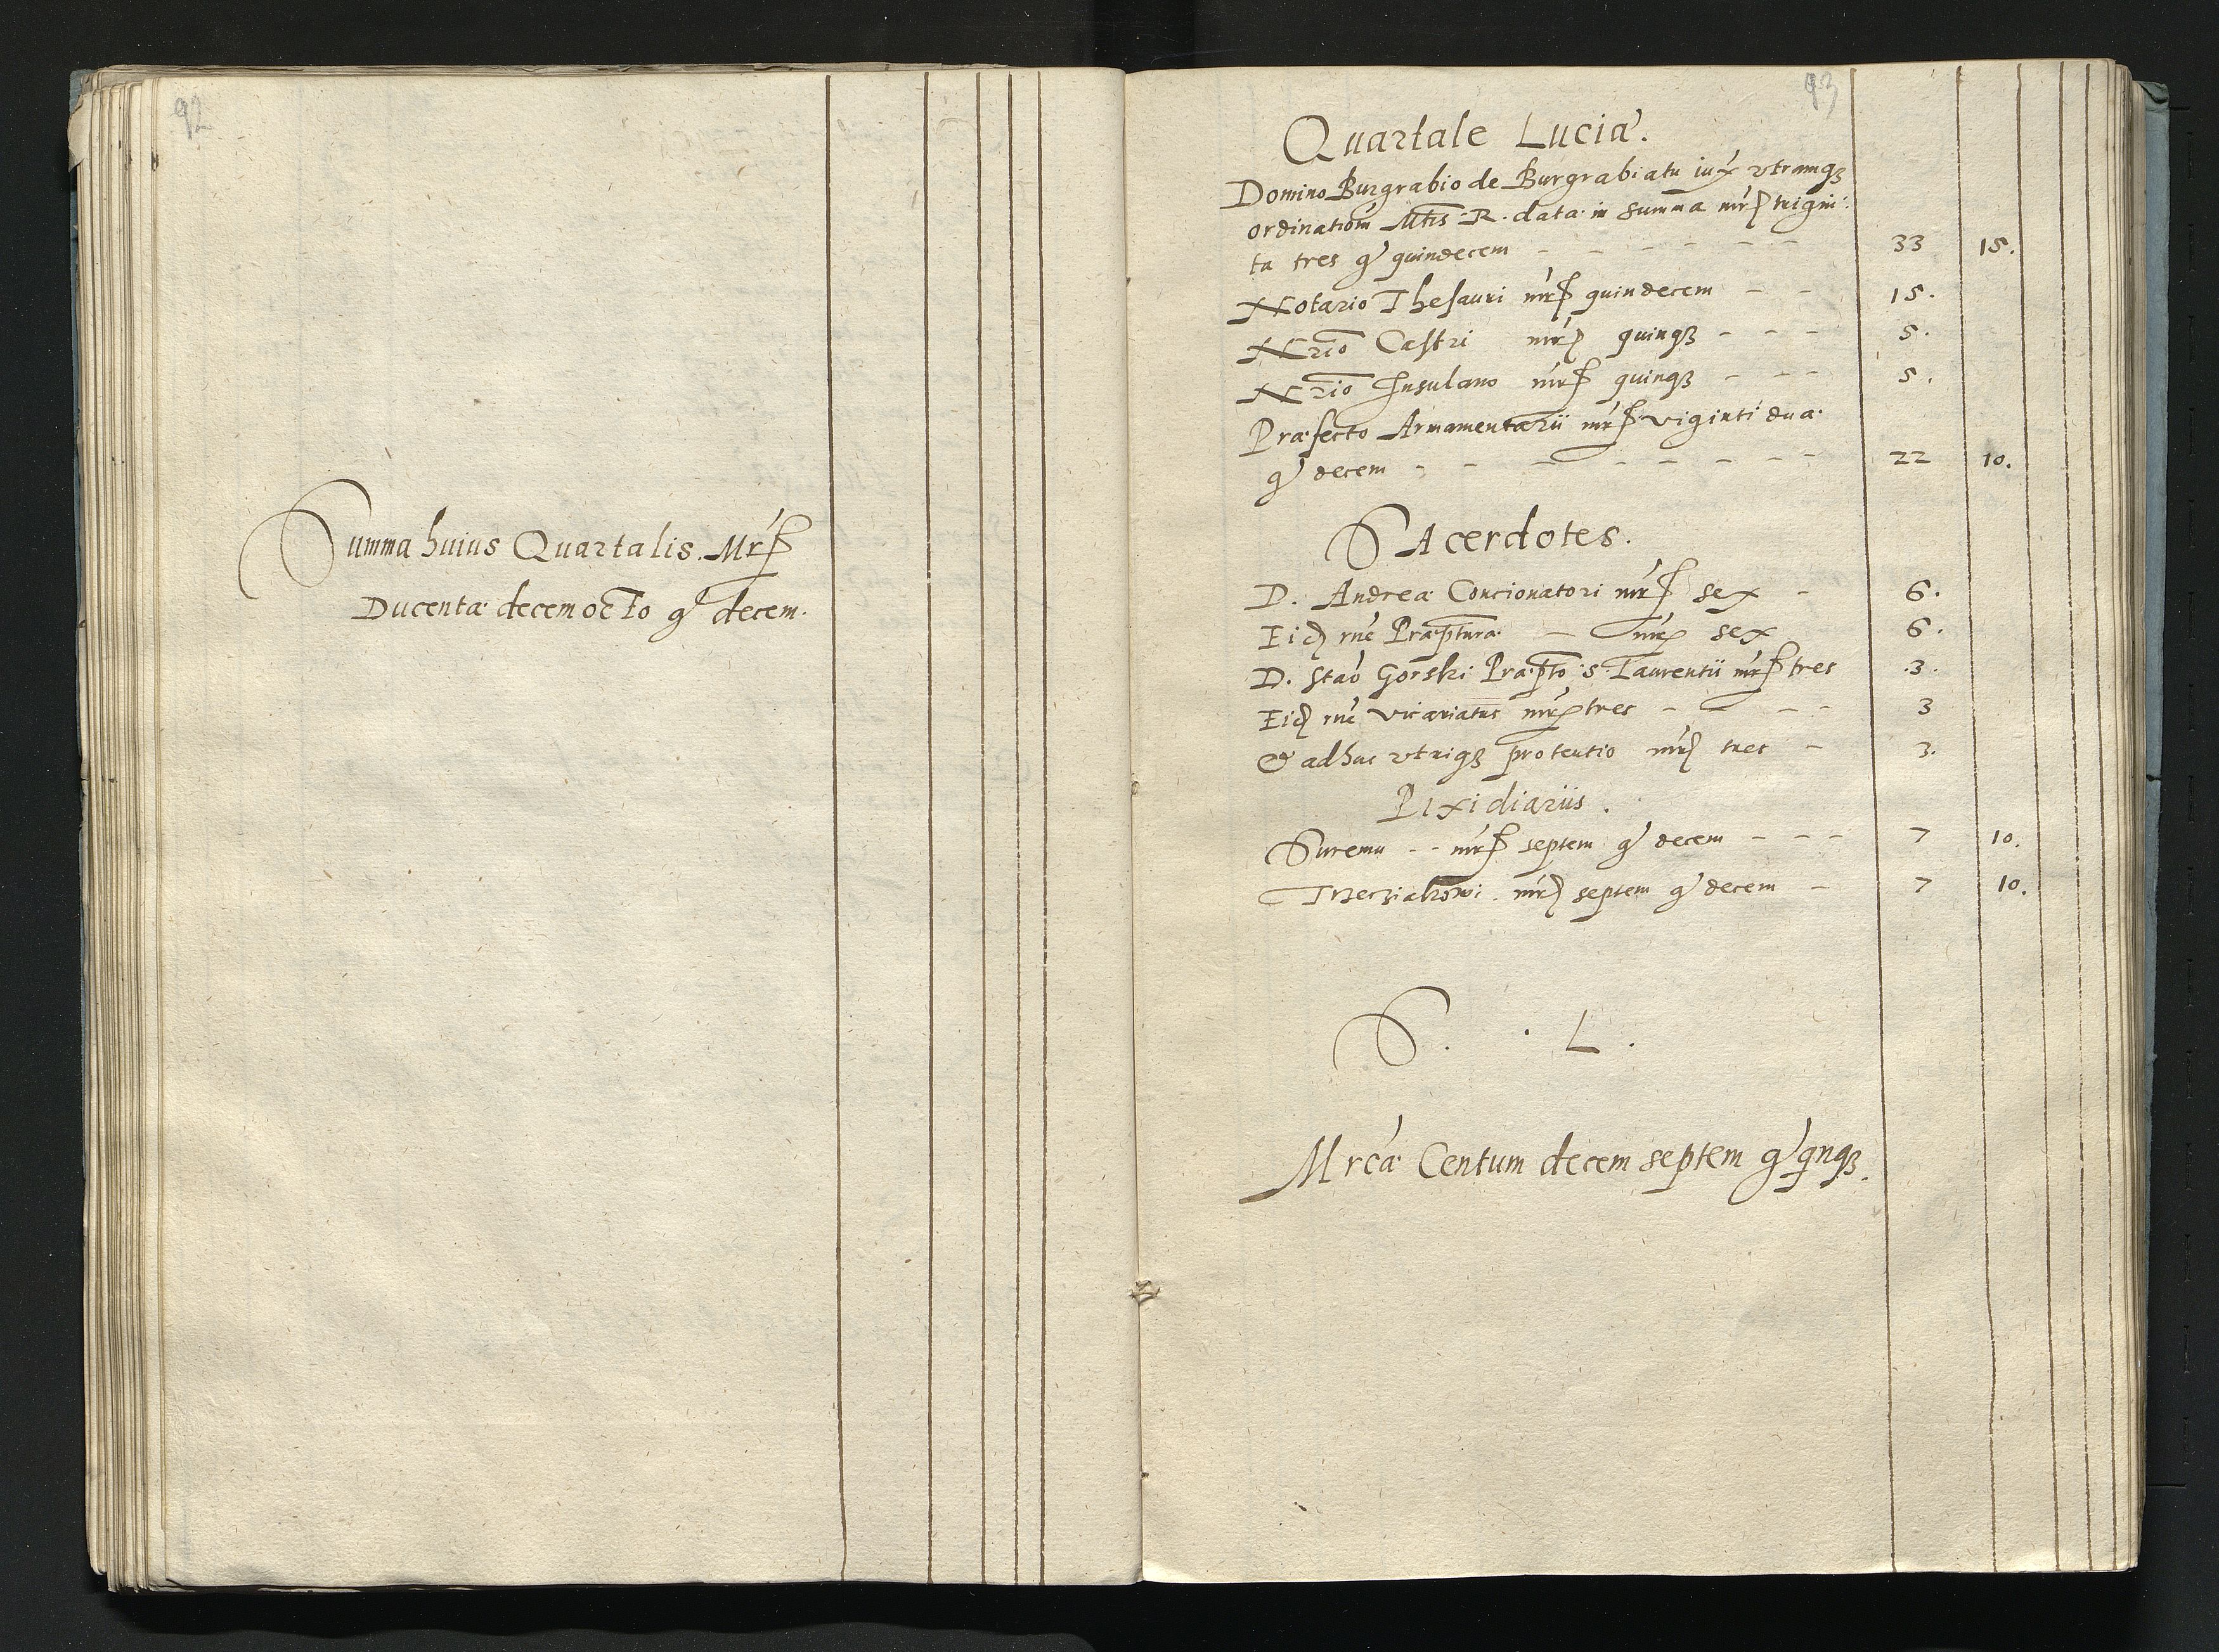 92
Summa huius Quartalis. Mrć
Ducentæ decem octo g decem.
93
Quartale Luciæ.
Domino Burgrabio de Burgrabiatu iux vtramqȝ
ordinatiom Mtis R. datæ in summa mrć trigin:
ta tres g quindecem - - - - - - 33 15.
Notario Thesauri mrć quindecem - - 15.
Nrio Castri mrć quinqȝ - - - 5.
Nrio Insulano mrć quinqȝ - - - 5.
Præfecto Armamentarii mrć viginti duæ
g decem - - - - - - - - 22 10.
SAcerdotes.
D. Andreæ Concionatori mrć sex - 6.
Eid rne Præpturæ - mrć sex 6.
D. Stao Gorski Præpto S. Laurentii mrć tres .3.
Eid rne vicariatus mrć tres - - - 3
& adhuc vtriqȝ protentio mrć tres - 3.
Pixidiariis.
Suremu - - mrć septem g decem - - - 7 10.
Trzeciakowi. mrć septem g decem - 7 10.
S. . L.
Mrcæ Centum decem septem g qnqȝ.